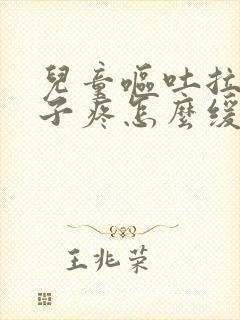 兒童嘔吐拉
子疼怎麼緩
王兆榮